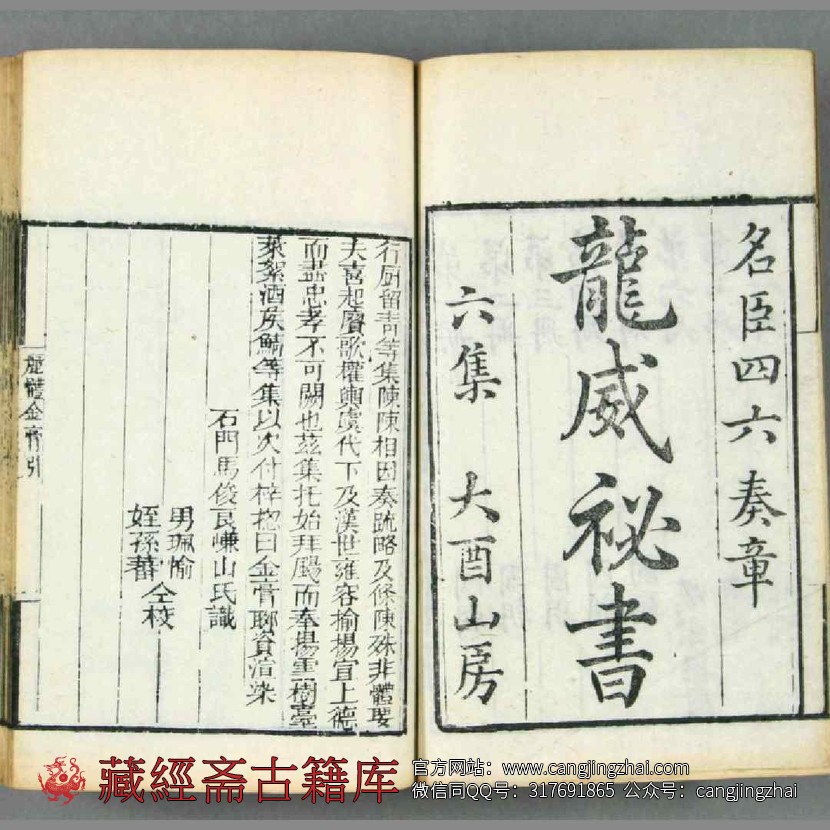 名臣四六奏章
龍威祕書
六集 大酉山房
行厨留青等集陳陳相因奏疏略及條陳殊非體要
夫喜起賡歌權輿虞代下及漢世雍容揄揚宜上德
而盡忠孝不可闕也茲集托始拜颺而奉揚雲樹臺
萊絮酒炙鯖等集以次付梓揔曰金膏聊資渲染
石門馬俊良嵰山氏識
男珮愉
姪孫蕾
仝校
麗體金膏引
藏經斋古籍库
官方网站：www.cangjingzhai.com
微信同QQ号：317691865 公众号：cangjingzhai